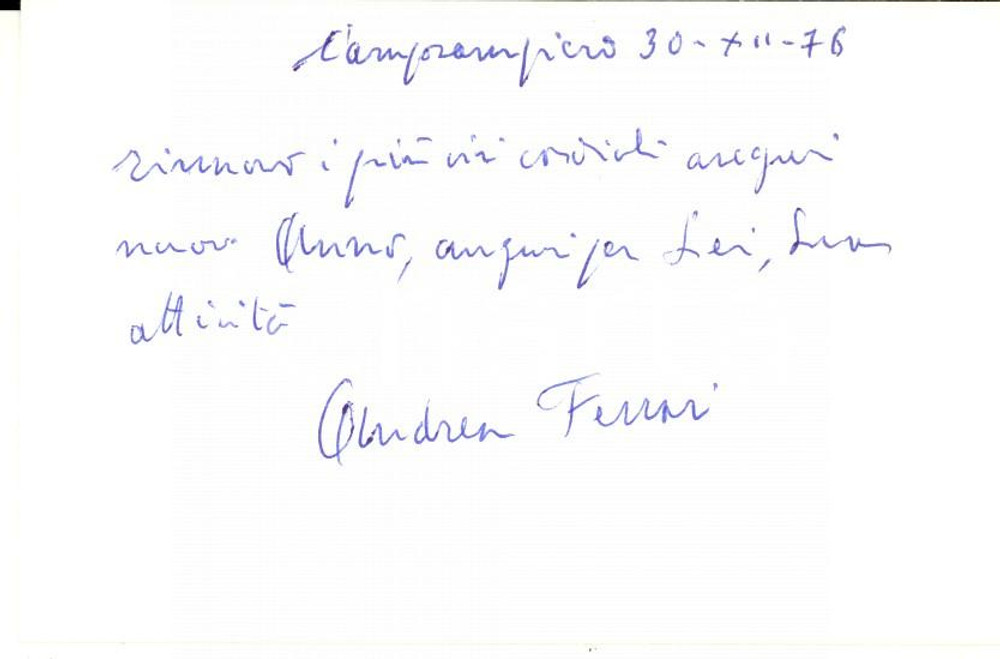 Camposampiero 30-XII-76
rinnovo i più vivi cordiali auguri
nuovo Anno, auguri per Lei, Sua
attività
Andrea Ferrari